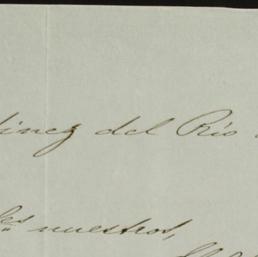 inez del Río
les nuestros,